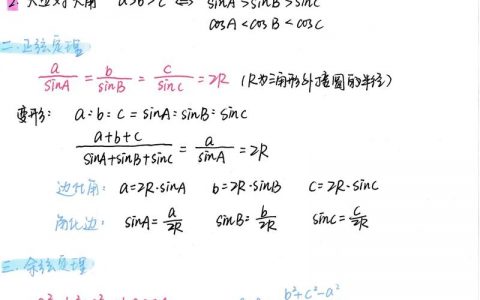 2. 大边对大角 a>b>c ⇔ sinA>sinB>sinC
cosA<cosB<cosC
二.正弦定理
a/sinA = b/sinB = c/sinC = 2R (R为三角形外接圆的半径)
变形: a:b:c = sinA:sinB:sinC
(a+b+c)/(sinA+sinB+sinC) = a/sinA = 2R
边化角: a=2R·sinA b=2R·sinB c=2R·sinC
角化边: sinA=a/2R sinB=b/2R sinC=c/2R
三.余弦定理
b²+c²-a²